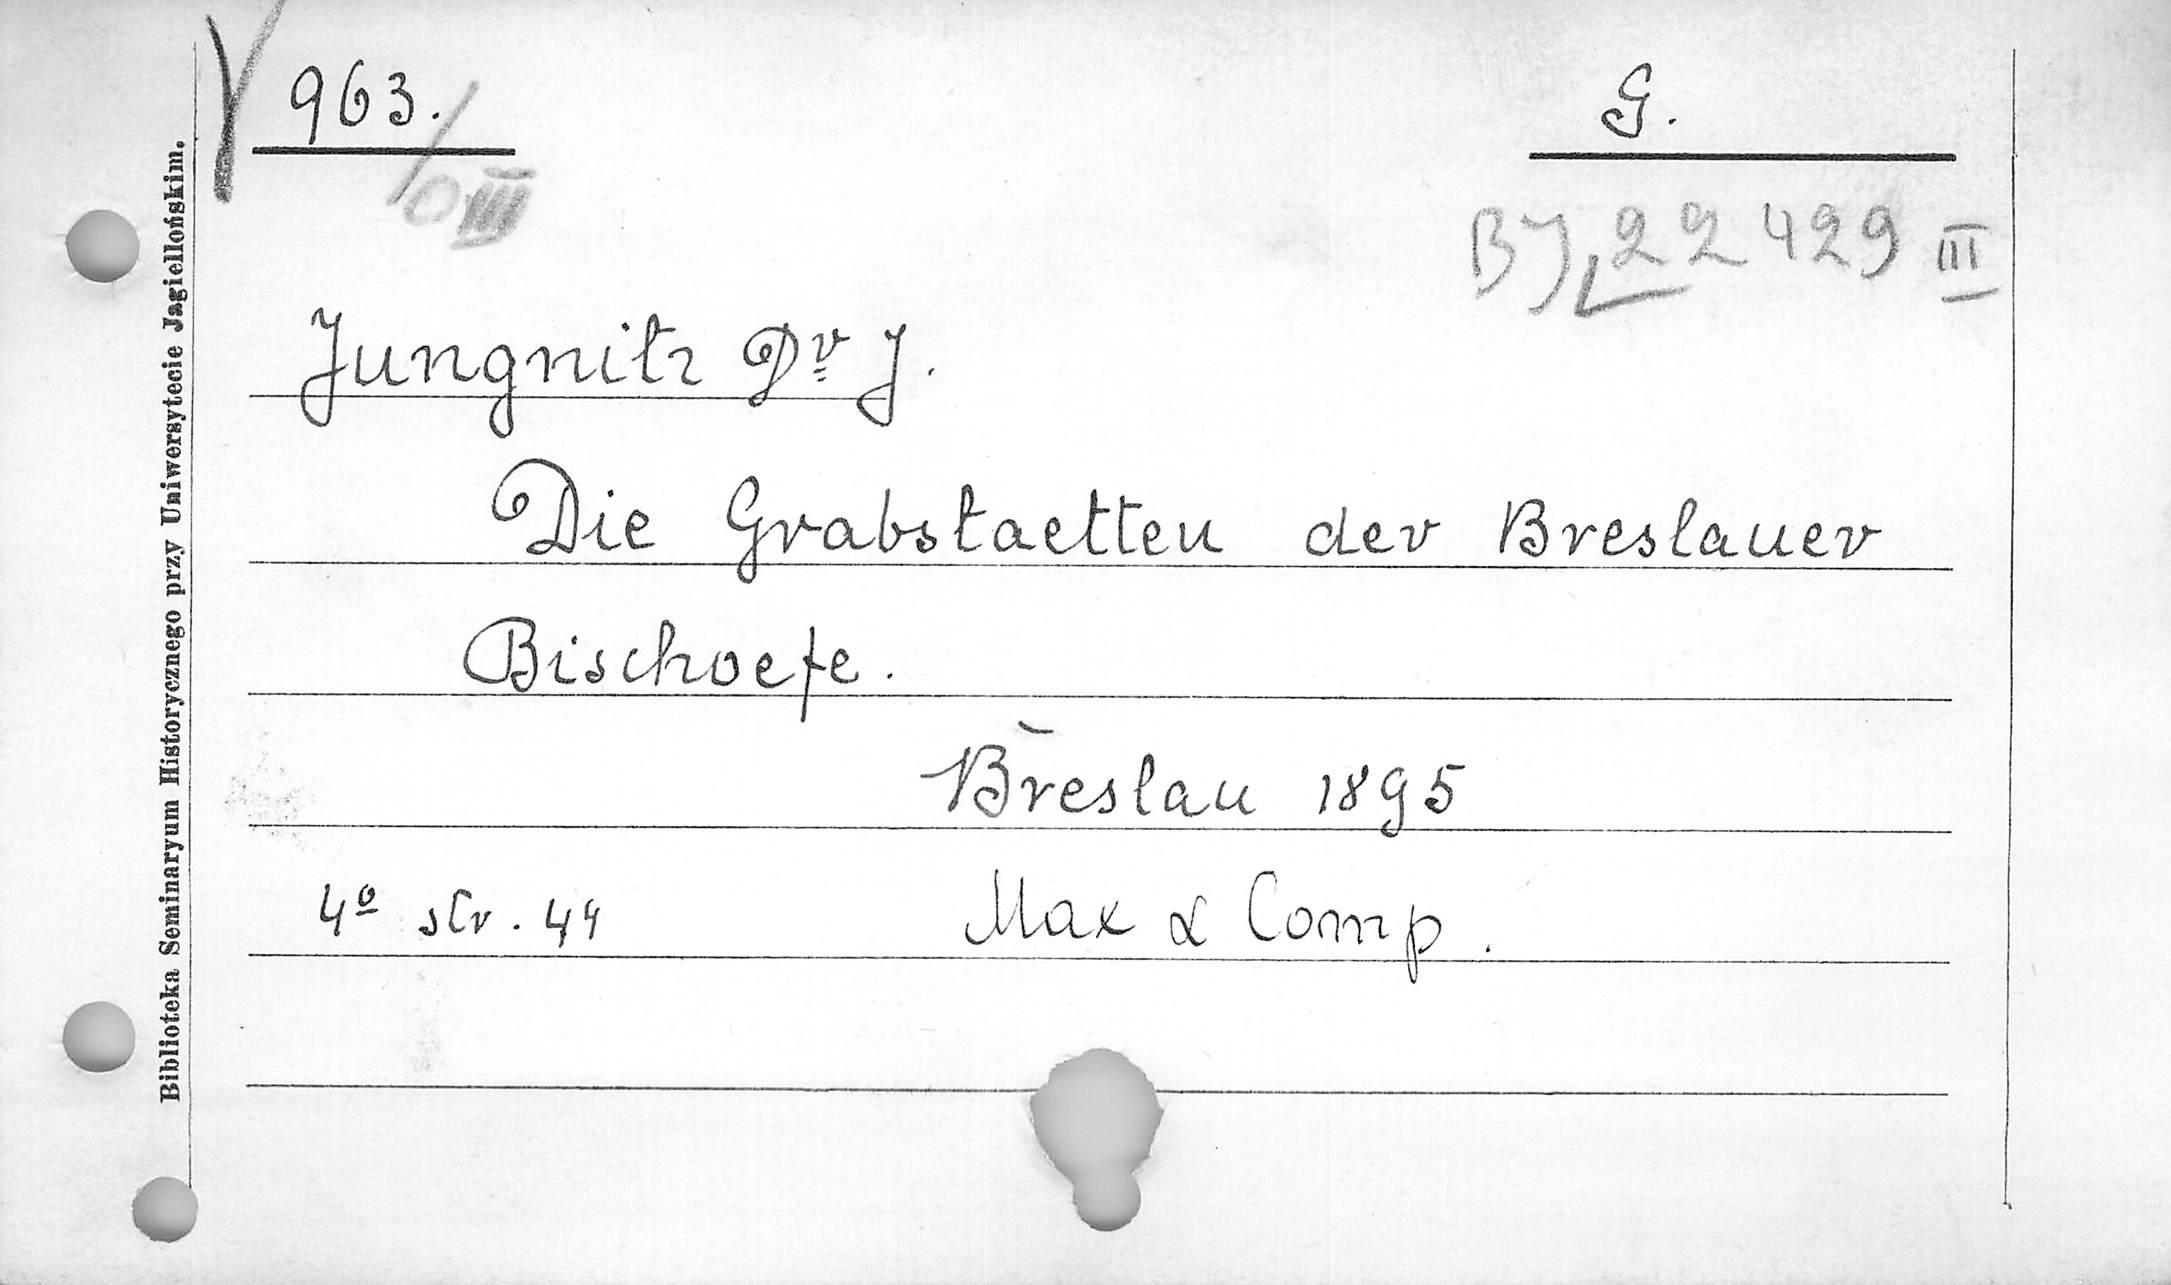 963. G.
0 III
BJ, 22429 III
Jungnitz Dr J.
Die Grabstaetten der Breslauer
Bischoefe.
Breslau 1895
4o str. 44 Max & Comp.
Biblioteka Seminaryum Historycznego przy Uniwersytecie Jagiellońskim.